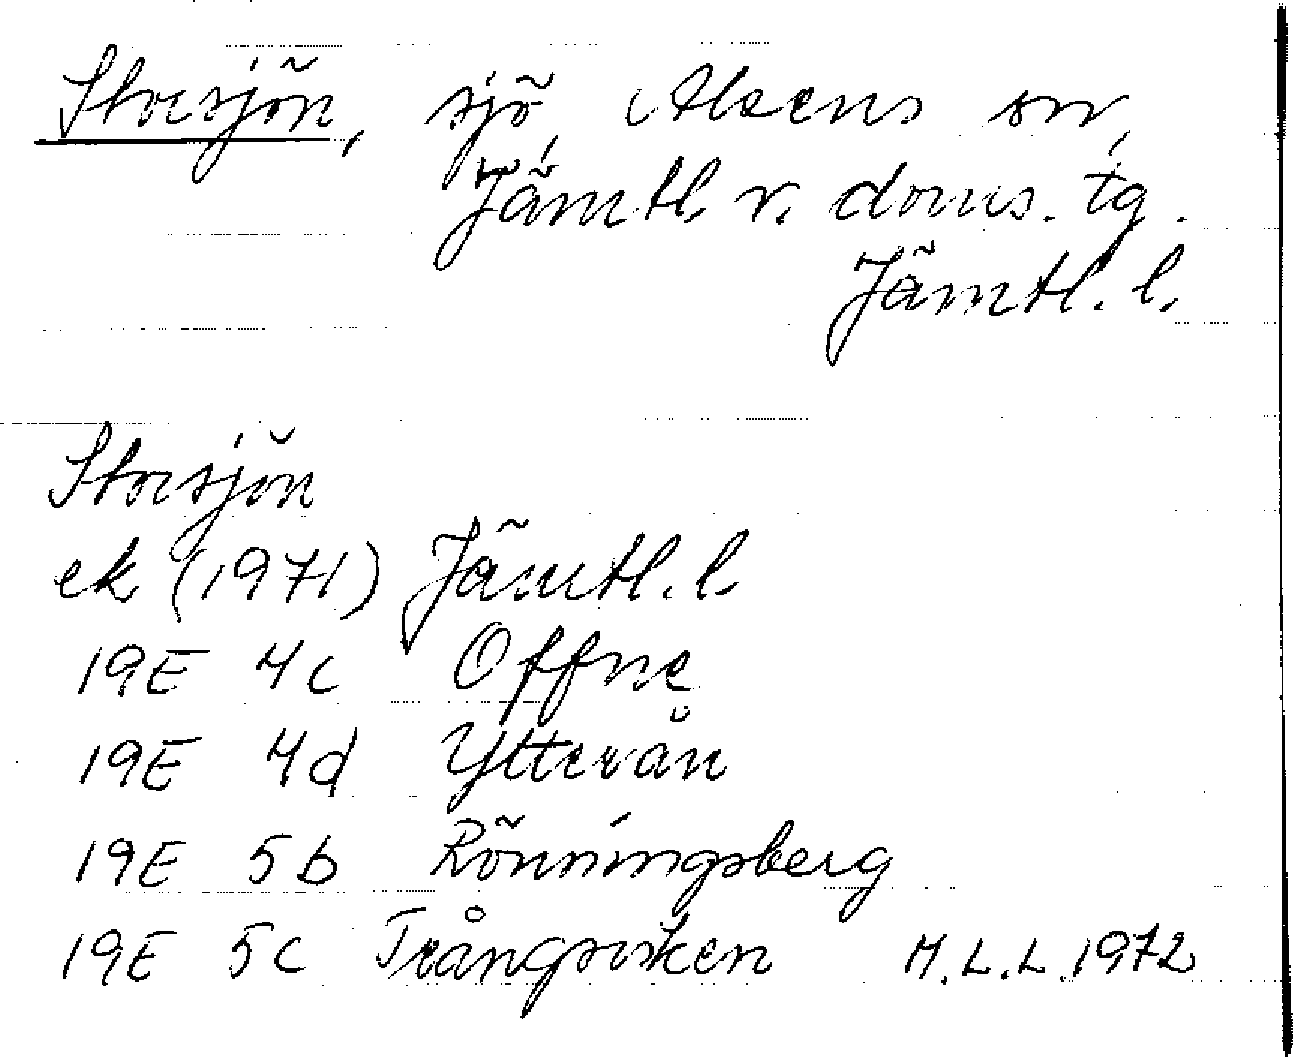 Storsjön, sjö, Alsens sn,
Jämtl. v. doms. tg.
Jämtl. l.
Storsjön
ek (1971) Jämtl. l.
19E 4c Offne
19E 4d Ytterån
19E 5b Rönningsberg
19E 5c Trångsviken M.L.L. 1972